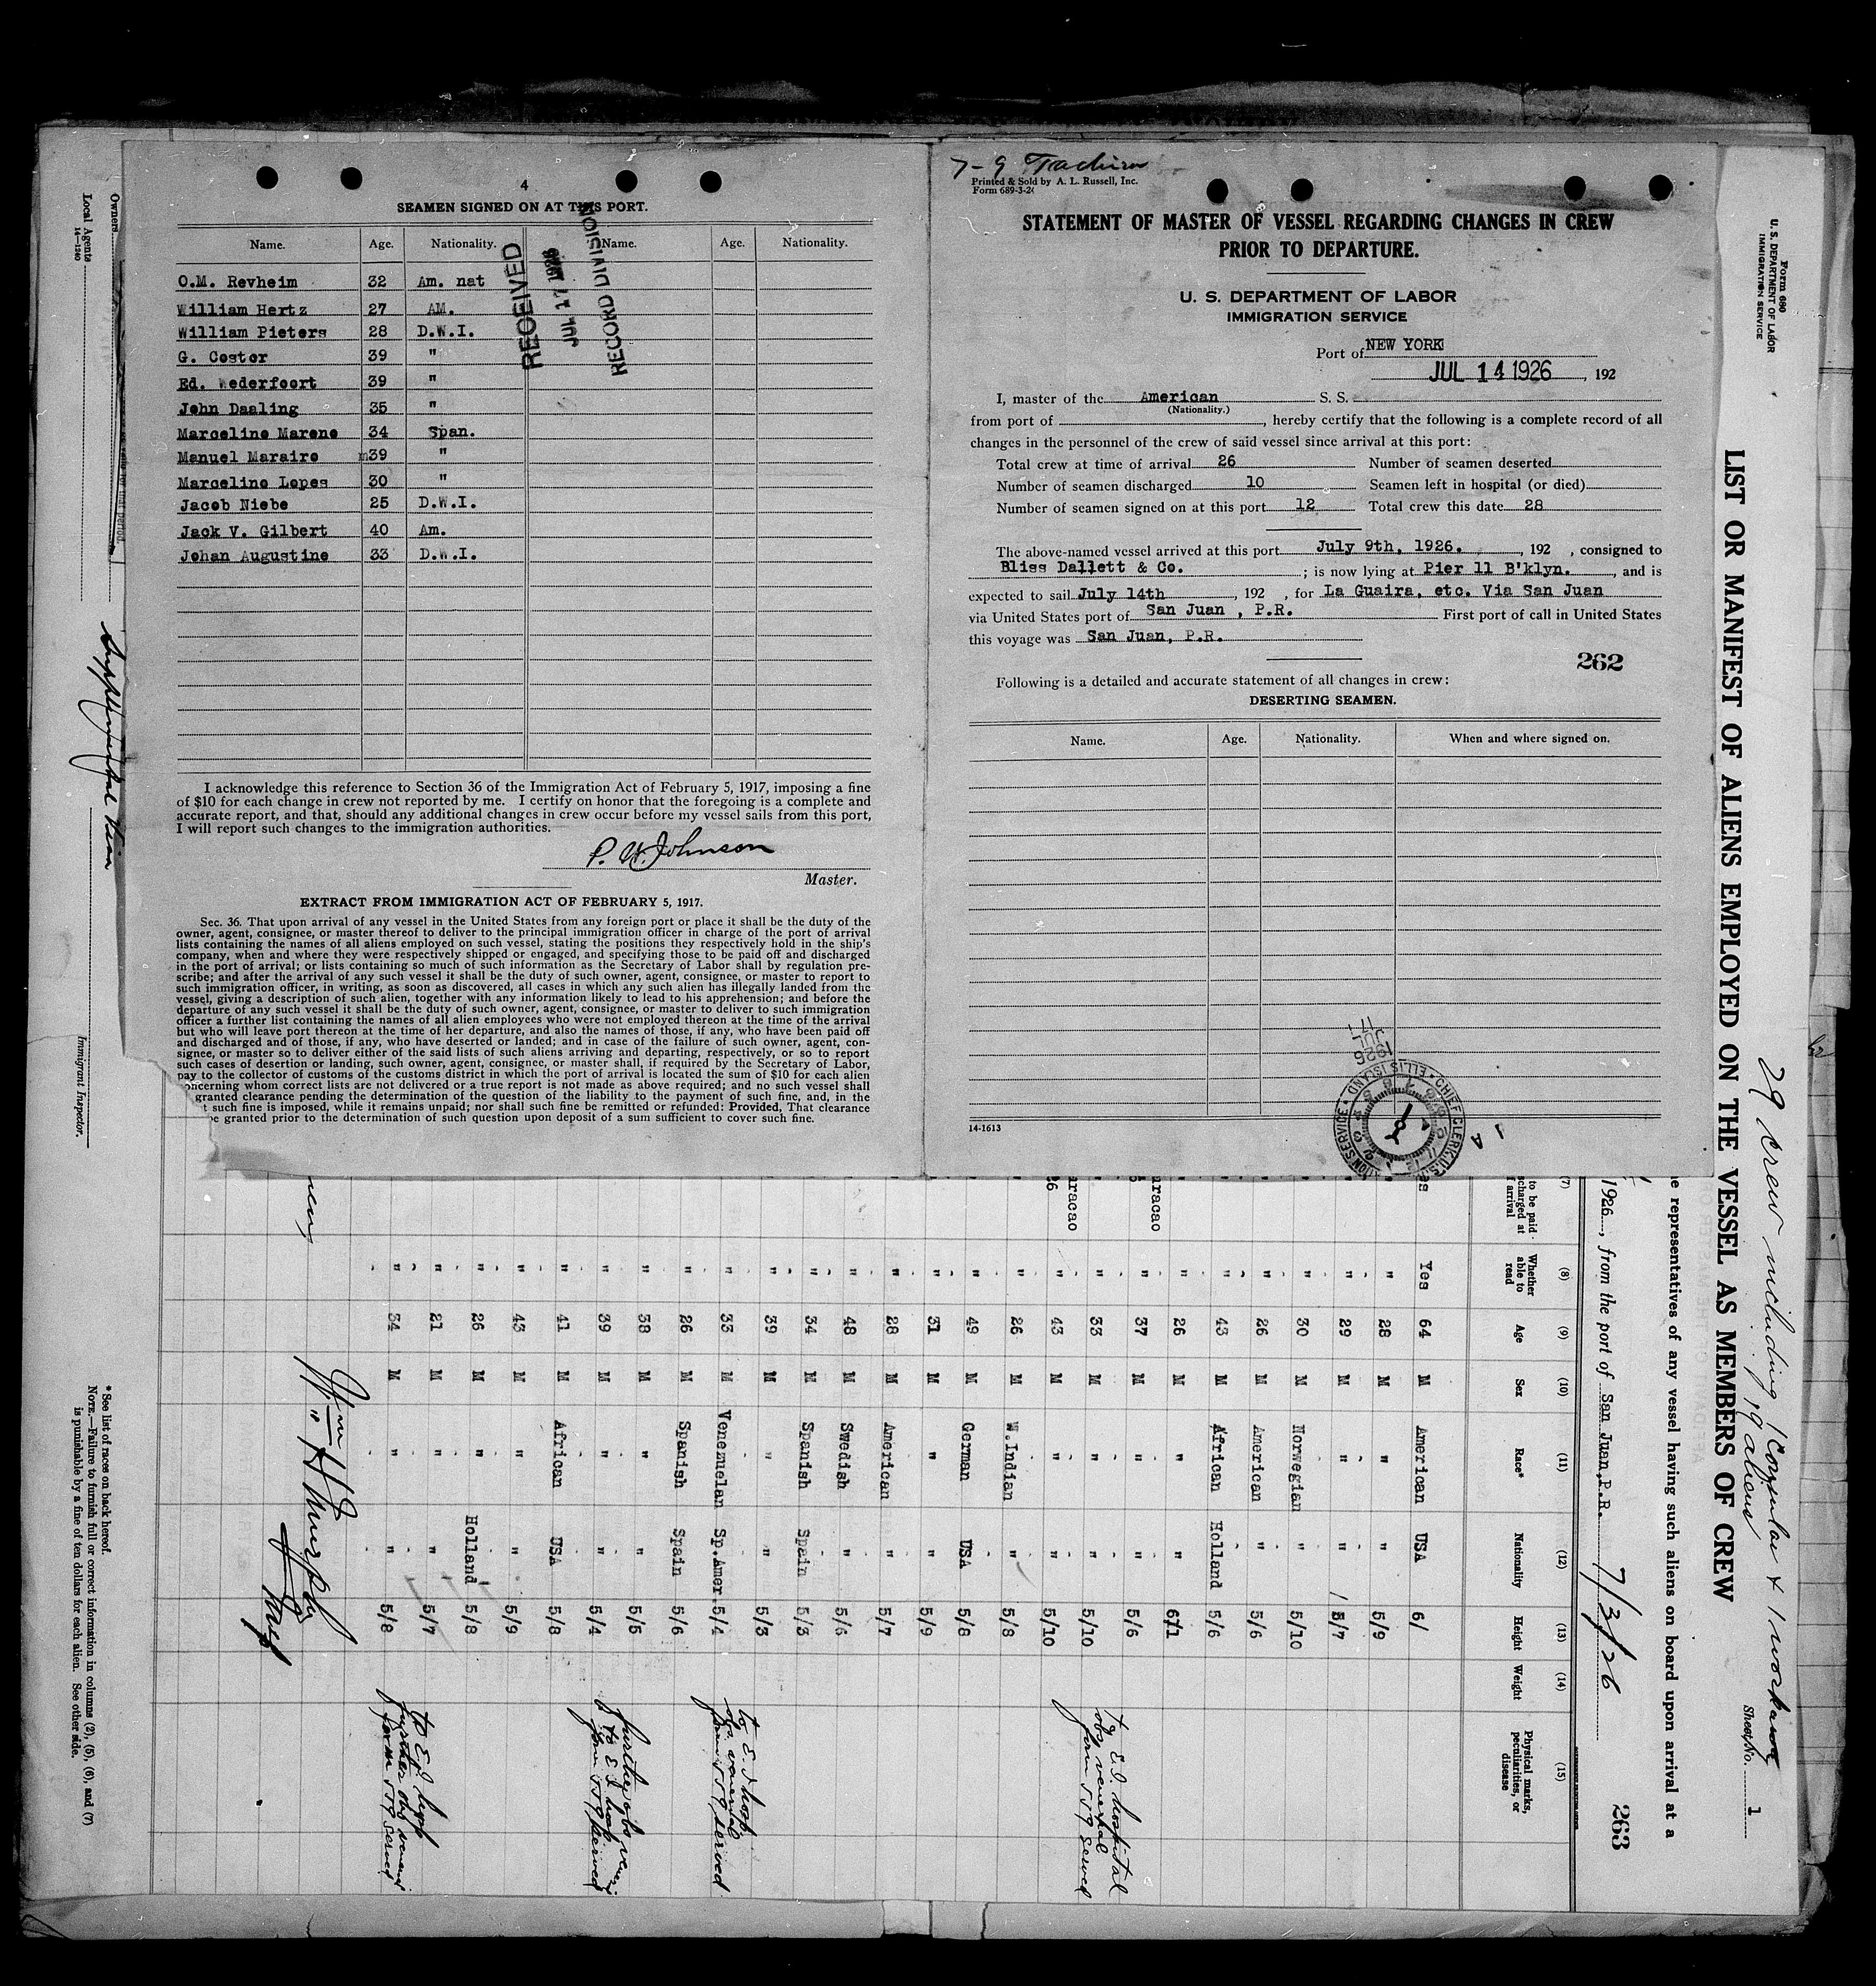 4
SEAMEN SIGNED ON AT THIS PORT.
Name. Age. Nationality. Name. Age. Nationality.
O.M. Revheim 32 Am. nat
William Hertz 27 AM.
William Pieters 28 D.W.I.
G. Coster 39 "
Ed. Wederfoort 39 "
John Daaling 35 "
Marceline Marene 34 Span.
Manuel Maraire 39 "
Marceline Lopes 30 "
Jacob Niebe 25 D.W.I.
Jack V. Gilbert 40 Am.
Johan Augustine 33 D.W.I.
RECEIVED
JUL 17 1926
RECORD DIVISION
I acknowledge this reference to Section 36 of the Immigration Act of February 5, 1917, imposing a fine
of $10 for each change in crew not reported by me. I certify on honor that the foregoing is a complete and
accurate report, and that, should any additional changes in crew occur before my vessel sails from this port,
I will report such changes to the immigration authorities.
P. W. Johnson
Master.
EXTRACT FROM IMMIGRATION ACT OF FEBRUARY 5, 1917.
Sec. 36. That upon arrival of any vessel in the United States from any foreign port or place it shall be the duty of the
owner, agent, consignee, or master thereof to deliver to the principal immigration officer in charge of the port of arrival
lists containing the names of all aliens employed on such vessel, stating the positions they respectively hold in the ship's
company, when and where they were respectively shipped or engaged, and specifying those to be paid off and discharged
in the port of arrival; or lists containing so much of such information as the Secretary of Labor shall by regulation pre-
scribe; and after the arrival of any such vessel it shall be the duty of such owner, agent, consignee, or master to report to
such immigration officer, in writing, as soon as discovered, all cases in which any such alien has illegally landed from the
vessel, giving a description of such alien, together with any information likely to lead to his apprehension; and before the
departure of any such vessel it shall be the duty of such owner, agent, consignee, or master to deliver to such immigration
officer a further list containing the names of all alien employees who were not employed thereon at the time of the arrival
but who will leave port thereon at the time of her departure, and also the names of those, if any, who have been paid off
and discharged and of those, if any, who have deserted or landed; and in case of the failure of such owner, agent, con-
signee, or master so to deliver either of the said lists of such aliens arriving and departing, respectively, or so to report
such cases of desertion or landing, such owner, agent, consignee, or master shall, if required by the Secretary of Labor,
pay to the collector of customs of the customs district in which the port of arrival is located the sum of $10 for each alien
concerning whom correct lists are not delivered or a true report is not made as above required; and no such vessel shall
granted clearance pending the determination of the question of the liability to the payment of such fine, and, in the
such fine is imposed, while it remains unpaid; nor shall such fine be remitted or refunded: Provided, That clearance
granted prior to the determination of such question upon deposit of a sum sufficient to cover such fine.
7-9 Tachira
Printed & Sold by A. L. Russell, Inc.
Form 689-3-26
STATEMENT OF MASTER OF VESSEL REGARDING CHANGES IN CREW
PRIOR TO DEPARTURE.
U. S. DEPARTMENT OF LABOR
IMMIGRATION SERVICE
Port of NEW YORK
JUL 14 1926, 192
I, master of the American S. S.
(Nationality.)
from port of , hereby certify that the following is a complete record of all
changes in the personnel of the crew of said vessel since arrival at this port:
Total crew at time of arrival 26 Number of seamen deserted
Number of seamen discharged 10 Seamen left in hospital (or died)
Number of seamen signed on at this port 12 Total crew this date 28
The above-named vessel arrived at this port July 9th, 1926. , 192 , consigned to
Bliss Dallett & Co. ; is now lying at Pier 11 B'klyn. , and is
expected to sail July 14th , 192 , for La Guaira, etc. Via San Juan
via United States port of San Juan , P.R. First port of call in United States
this voyage was San Juan, P.R.
262
Following is a detailed and accurate statement of all changes in crew:
DESERTING SEAMEN.
Name. Age. Nationality. When and where signed on.
14-1613
JUL 17 1926
CHIEF CLERK U.S. IMMIGRATION SERVICE ELLIS ISLAND
Form 680
U. S. DEPARTMENT OF LABOR
IMMIGRATION SERVICE
29 crew including 1 Consular & 1 workaway
19 aliens
Sheet No. 1
LIST OR MANIFEST OF ALIENS EMPLOYED ON THE VESSEL AS MEMBERS OF CREW
representatives of any vessel having such aliens on board upon arrival at a
1926, from the port of San Juan, P.R. 7/3/26
263
(7) (8) (9) (10) (11) (12) (13) (14) (15)
to be paid
arrival
Whether able to read Age Sex Race* Nationality Height Weight Physical marks, peculiarities, or disease
Yes 64 M American USA 6/
" 28 M " " 5/9
" 29 M " " 5/7
" 30 M Norwegian " 5/10
" 26 M American " 5/6
" 43 M African Holland 5/6
" 26 M " " 6/1
" 37 M " " 5/6 To E.I. hospital
" 33 M " " 5/10 obs venereal
" 43 M " " 5/10 form 559 served
" 26 M W.Indian " 5/8
" 49 M German USA 5/8
" 31 M " " 5/9
" 28 M American " 5/7
" 48 M Swedish " 5/6
" 34 M Spanish Spain 5/3
" 39 M " " 5/3
" 33 M Venezuelan Sp.Amer. 5/4 to E.I. hosp obs venereal form 559 served
" 26 M Spanish Spain 5/6
" 38 M " " 5/5 further obs
" 39 M " " 5/4 to E.I. hosp form 559 served
" 41 M African USA 5/8
" 43 M " " 5/9
" 26 M " Holland 5/8
" 21 M " " 5/7 to E.I. hosp
" 34 M " " 5/8 further obs form 559 served
Wm H Murphy
* See list of races on back hereof.
NOTE.—Failure to furnish full or correct information in columns (2), (5), (6), and (7)
is punishable by a fine of ten dollars for each alien. See other side.
Owners
Local Agents
14-1240
Supplemental
Immigrant Inspector.